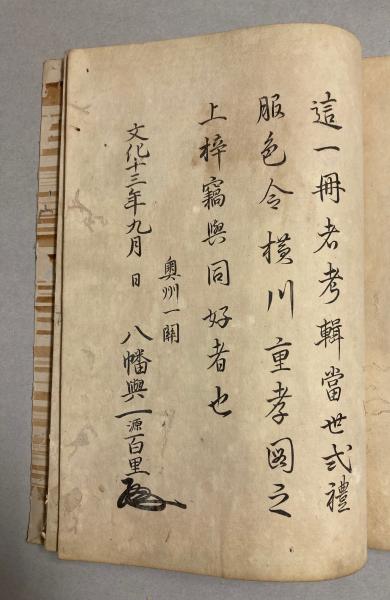 這一冊者考輯當世式禮
服色令横川重孝図之
上梓竊與同好者也
奥州一關
文化十三年九月 日 八幡與一源百里